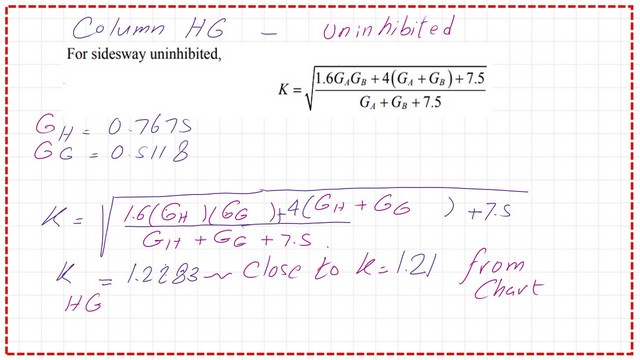 Column HG - Uninhibited
For sidesway uninhibited,
K = √((1.6G_A G_B + 4(G_A + G_B) + 7.5) / (G_A + G_B + 7.5))
G_H = 0.7675
G_G = 0.5118
K = √(1.6(G_H)(G_G) + 4(G_H + G_G) + 7.5 / G_H + G_G + 7.5.
K_HG = 1.2283 ~ Close to K = 1.21 from Chart